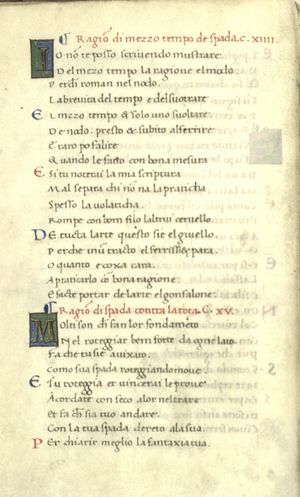 ¶ Ragiō di mezzo tempo de spada. c. XIIII.
IO nō te posso scrivendo mustrare
Del mezo tempo la ragione el modo
Perchi roman nel nodo.
La brevita del tempo e del suo trare
El mezo tempo e solo uno suoltare
De nodo: presto e subito al ferire
E raro po falire
Quando le facto con bona mesura
E si tu noterai la mia scriptura
Mal se para chi nō na la praticha
Spesso la volaticha.
Rompe con bon filo laltrui cervello
De tucta larte questo sie el giuello.
Perche inū tracto el ferrisse & para.
O quanto e coxa cara.
A praticarlo cō bona ragione
E facte portar de larte el gonfalone.
¶ Ragiō di spada contra la rota. C. XV.
Molti son chi fan lor fondamēto
Nel roteggiar bem forte da ogne lato.
Fa che tu sie avixato.
Como sua spada roteggiando move
E tu roteggia et vincerai le prove.
Acordate con seco alor nel trare
Et fa chi sia tuo andare.
Con la tua spada dereto a la sua.
Per chiarir meglio la fantaxia tua.